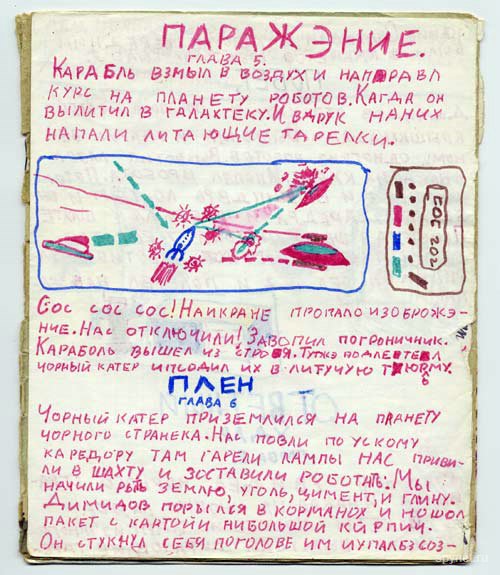 ПАРАЖЭНИЕ.
ГЛАВА 5.
КАРАБЛЬ ВЗМЫЛ В ВОЗДУХ И НАПОРАВЛ
КУРС НА ПЛАНЕТУ РОБОТОВ. КАГДА ОН
ВЫЛИТИЛ В ГАЛАХТЕКУ. И ВДРУК НАНИХ
НАПАЛИ ЛИТАЮЩИЕ ТАРЕЛКИ.
СОС СОС
СОС СОС СОС! НАИКРАНЕ ПРОПАЛО ИЗОБРОЖЭ-
НИЕ. НАС ОТКЛЮЧИЛИ! ЗАВОПИЛ ПОГРОНИЧНИК.
КАРАБОЛЬ ВЫШЕЛ ИЗ СТРОЯ. ТУТЖЭ ПОДЛЕТЕЛ
ЧОРНЫЙ КАТЕР ИПСОДИЛ ИХ В ЛИТУЧУЮ ТЮРМУ.
ПЛЕН
ГЛАВА 6
ЧОРНЫЙ КАТЕР ПРИЗЕМЛИЛСЯ НА ПЛАНЕТУ
ЧОРНОГО СТРАНЕКА. НАС ПОВЛИ ПО УСКОМУ
КАРЕДОРУ ТАМ ГАРЕЛИ ЛАМПЫ НАС ПРИВИ-
ЛИ В ШАХТУ И ЗОСТАВИЛИ РОБОТАТЬ. МЫ
НАЧИЛИ РЫТЬ ЗЕМЛЮ, УГОЛЬ, ЦИМЕНТ, И ГЛИНУ.
ДИМИДОВ ПОРЫЛСЯ В КОРМАНОХ И НОШОЛ
ПАКЕТ С КАРТОЙИ НИБОЛЬШОЙ КИРПИЧ.
ОН СТУКНУЛ СЕБЯ ПОГОЛОВЕ ИМ ИУПАЛБЗСОЗ-
spynet.ru